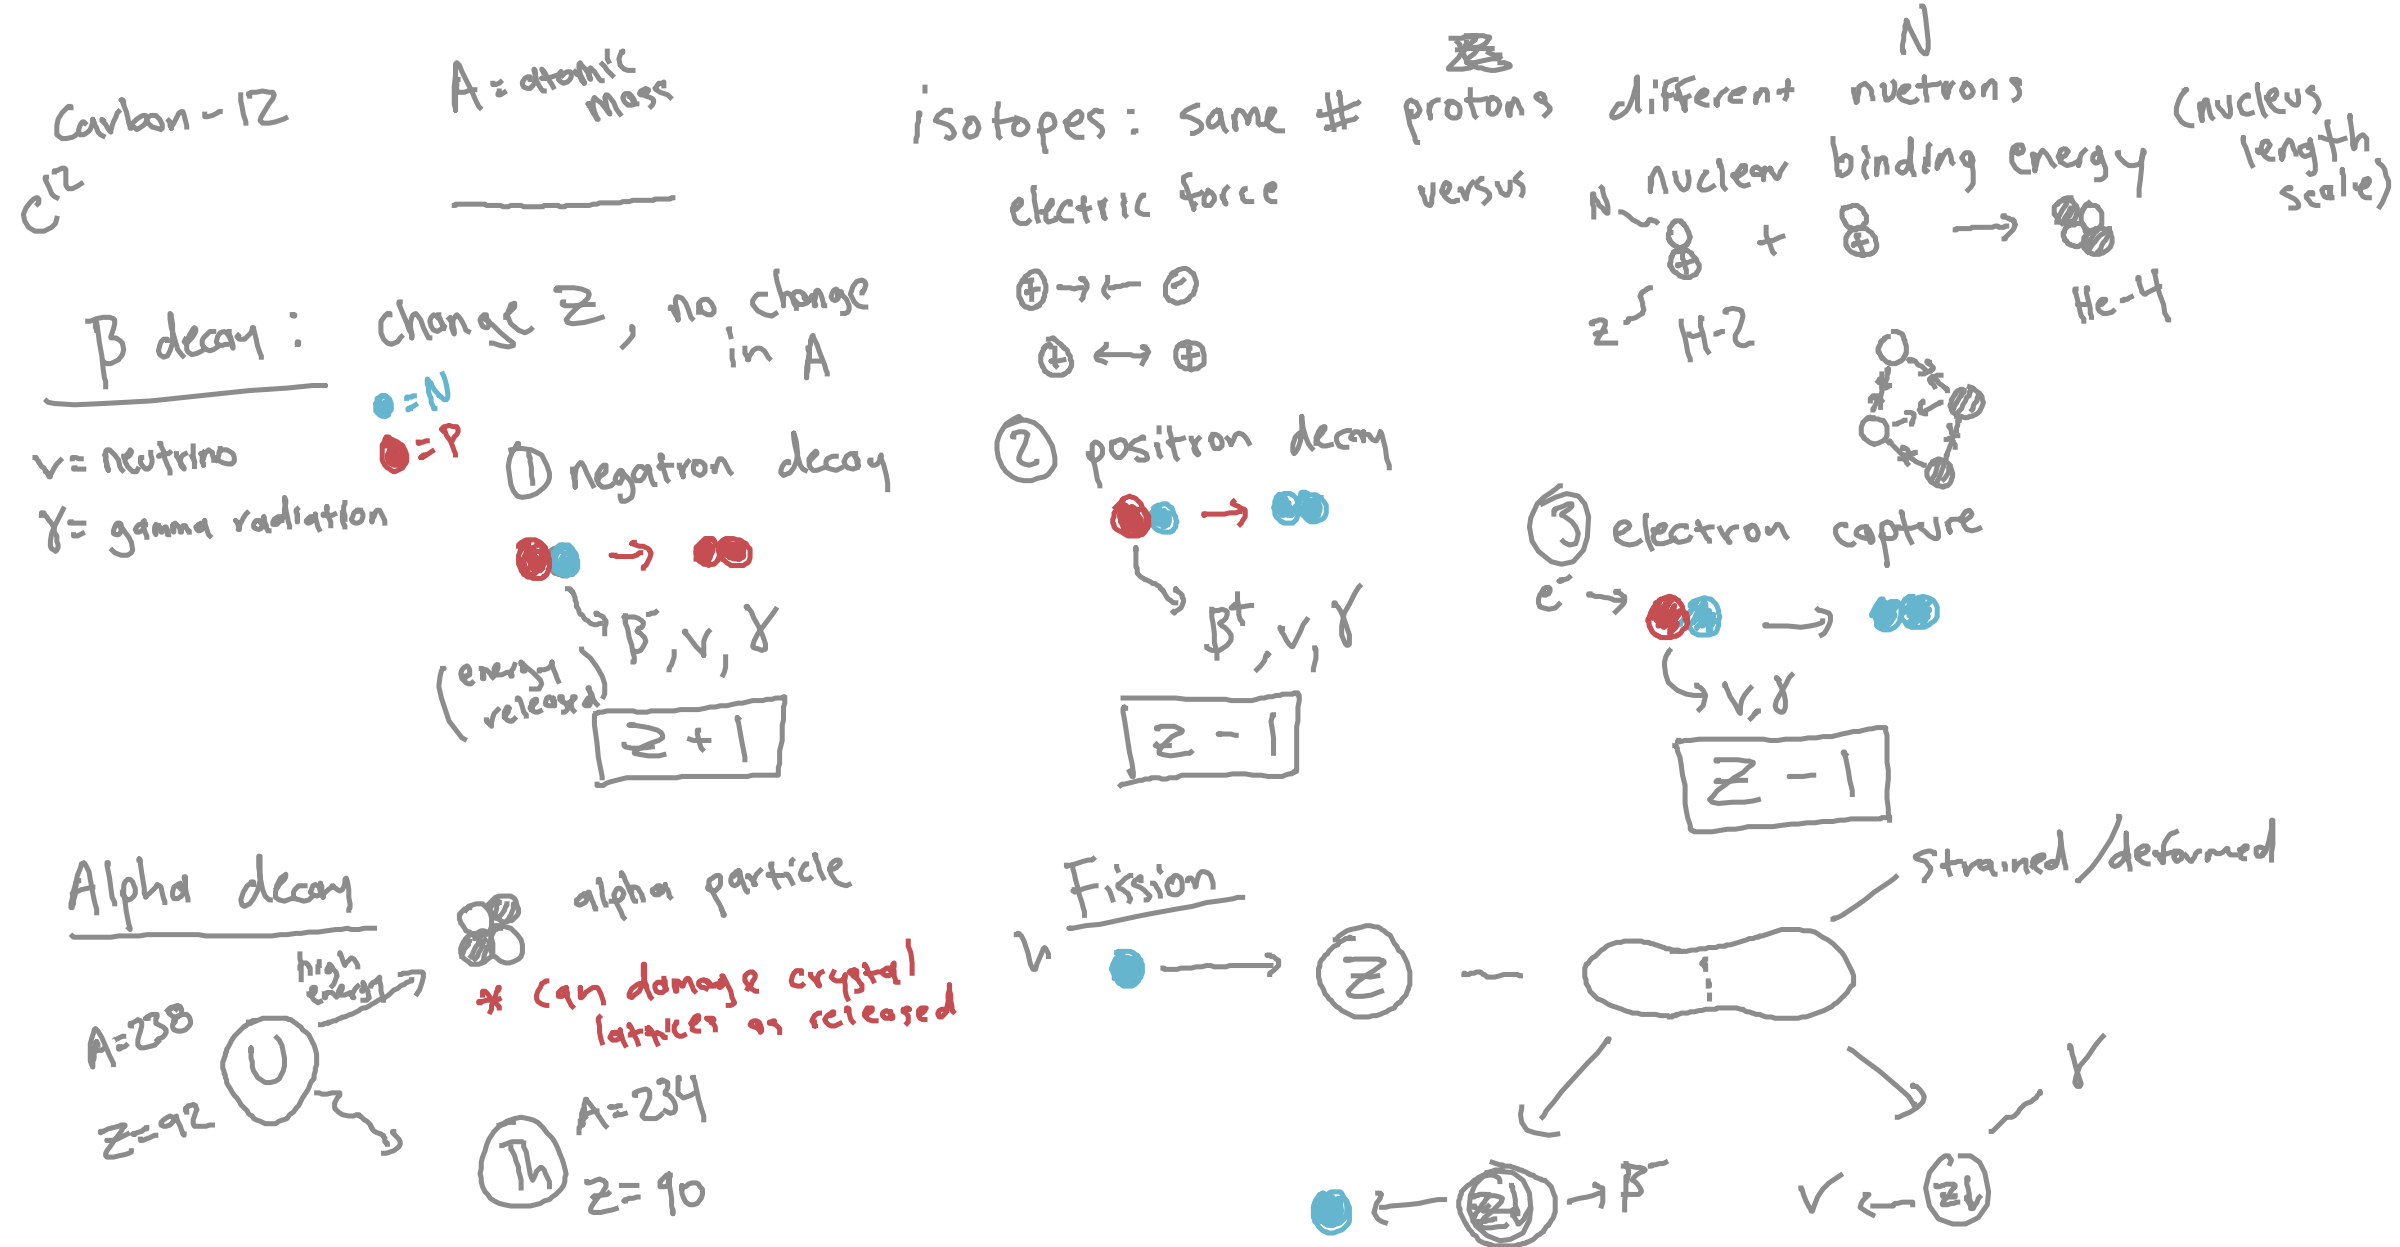 Carbon-12
C12
A = atomic
mass
N
isotopes: same # protons different nuetrons
(nucleus
length
scale)
electric force versus nuclear binding energy
+ → ← -
+ ↔ +
N
Z
+ + + →
H-2
He-4
β decay: change Z, no change
in A
= N
= P
ν = neutrino
γ = gamma radiation
① negatron decay
→
β-, ν, γ
(energy
released)
Z + 1
② positron decay
→
β+, ν, γ
Z - 1
③ electron capture
e- → →
ν, γ
Z - 1
Alpha decay
alpha particle
high
energy
* can damage crystal
lattices as released
A=238
Z=92
U
Th
A=234
Z=90
Fission
strained/deformed
ν
→ Z —
γ
← Z↓ → β-
ν ← Z↓